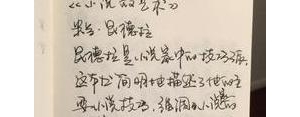 《小说的艺术》
米兰·昆德拉
昆德拉是小说家中的技巧派,
这本书简明地描述了他的主
要小说技巧,强调小说的